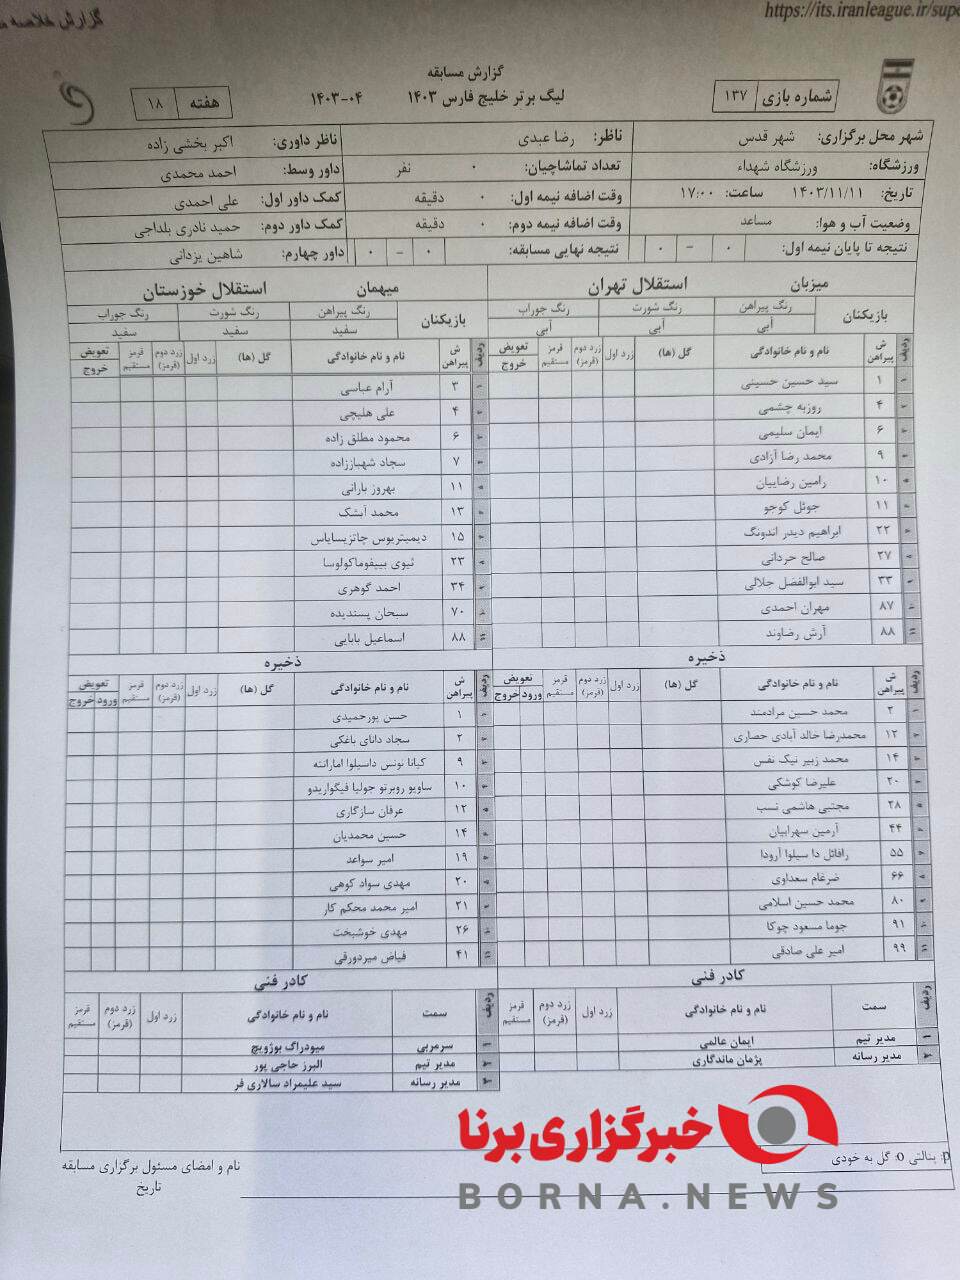 گزارش خلاصه
https://its.iranleague.ir/sup
گزارش مسابقه
شماره بازی ۱۳۷ لیگ برتر خلیج فارس ۱۴۰۳ ۱۴۰۳-۰۴ هفته ۱۸
شهر محل برگزاری: شهر قدس ناظر: رضا عبدی ناظر داوری: اکبر بخشی زاده
ورزشگاه: ورزشگاه شهداء تعداد تماشاچیان: ۰ نفر داور وسط: احمد محمدی
تاریخ: ۱۴۰۳/۱۱/۱۱ ساعت: ۱۷:۰۰ وقت اضافه نیمه اول: ۰ دقیقه کمک داور اول: علی احمدی
وضعیت آب و هوا: مساعد وقت اضافه نیمه دوم: ۰ دقیقه کمک داور دوم: حمید نادری بلداجی
نتیجه تا پایان نیمه اول: ۰ - ۰ نتیجه نهایی مسابقه: ۰ - ۰ داور چهارم: شاهین یزدانی
میزبان استقلال تهران میهمان استقلال خوزستان
بازیکنان رنگ پیراهن رنگ شورت رنگ جوراب بازیکنان رنگ پیراهن رنگ شورت رنگ جوراب
آبی آبی آبی سفید سفید سفید
ردیف ش پیراهن نام و نام خانوادگی گل (ها) زرد اول زرد دوم (قرمز) قرمز مستقیم تعویض خروج ردیف ش پیراهن نام و نام خانوادگی گل (ها) زرد اول زرد دوم (قرمز) قرمز مستقیم تعویض خروج
۱ ۱ سید حسین حسینی ۱ ۳ آرام عباسی
۲ ۴ روزبه چشمی ۲ ۴ علی هلیچی
۳ ۶ ایمان سلیمی ۳ ۶ محمود مطلق زاده
۴ ۹ محمد رضا آزادی ۴ ۷ سجاد شهباززاده
۵ ۱۰ رامین رضاییان ۵ ۱۱ بهروز بارانی
۶ ۱۱ جوئل کوجو ۶ ۱۳ محمد آبشک
۷ ۲۲ ابراهیم دیدر اندونگ ۷ ۱۵ دیمیتریوس چاتزیسایاس
۸ ۲۷ صالح حردانی ۸ ۲۳ ثیوی بییفوماکولوسا
۹ ۳۳ سید ابوالفضل جلالی ۹ ۳۴ احمد گوهری
۱۰ ۸۷ مهران احمدی ۱۰ ۷۰ سبحان پسندیده
۱۱ ۸۸ آرش رضاوند ۱۱ ۸۸ اسماعیل بابایی
ذخیره ذخیره
ردیف ش پیراهن نام و نام خانوادگی گل (ها) زرد اول زرد دوم (قرمز) قرمز مستقیم تعویض ورود خروج ردیف ش پیراهن نام و نام خانوادگی گل (ها) زرد اول زرد دوم (قرمز) قرمز مستقیم تعویض ورود خروج
۱ ۲ محمد حسین مرادمند ۱ ۱ حسن پورحمیدی
۲ ۱۲ محمدرضا خالد آبادی حصاری ۲ ۲ سجاد دانای باغکی
۳ ۱۴ محمد زبیر نیک نفس ۳ ۹ کیانا نونس داسیلوا امارانته
۴ ۲۰ علیرضا کوشکی ۴ ۱۰ ساویو روبرتو جولیا فیگواریدو
۵ ۲۸ مجتبی هاشمی نسب ۵ ۱۲ عرفان سازگاری
۶ ۴۴ آرمین سهرابیان ۶ ۱۴ حسین محمدیان
۷ ۵۵ رافائل دا سیلوا آرودا ۷ ۱۹ امیر سواعد
۸ ۶۶ ضرغام سعداوی ۸ ۲۰ مهدی سواد کوهی
۹ ۸۰ محمد حسین اسلامی ۹ ۲۱ امیر محمد محکم کار
۱۰ ۹۱ جوما مسعود چوکا ۱۰ ۲۶ مهدی خوشبخت
۱۱ ۹۹ امیر علی صادقی ۱۱ ۴۱ فیاض میردورقی
کادر فنی کادر فنی
ردیف سمت نام و نام خانوادگی زرد اول زرد دوم (قرمز) قرمز مستقیم ردیف سمت نام و نام خانوادگی زرد اول زرد دوم (قرمز) قرمز مستقیم
۱ مدیر تیم ایمان عالمی ۱ سرمربی میودراگ بوژویچ
۲ مدیر رسانه پژمان ماندگاری ۲ مدیر تیم البرز حاجی پور
۳ مدیر رسانه سید علیمراد سالاری فر
p: پنالتی o: گل به خودی
نام و امضای مسئول برگزاری مسابقه
تاریخ
خبرگزاری برنا
BORNA.NEWS